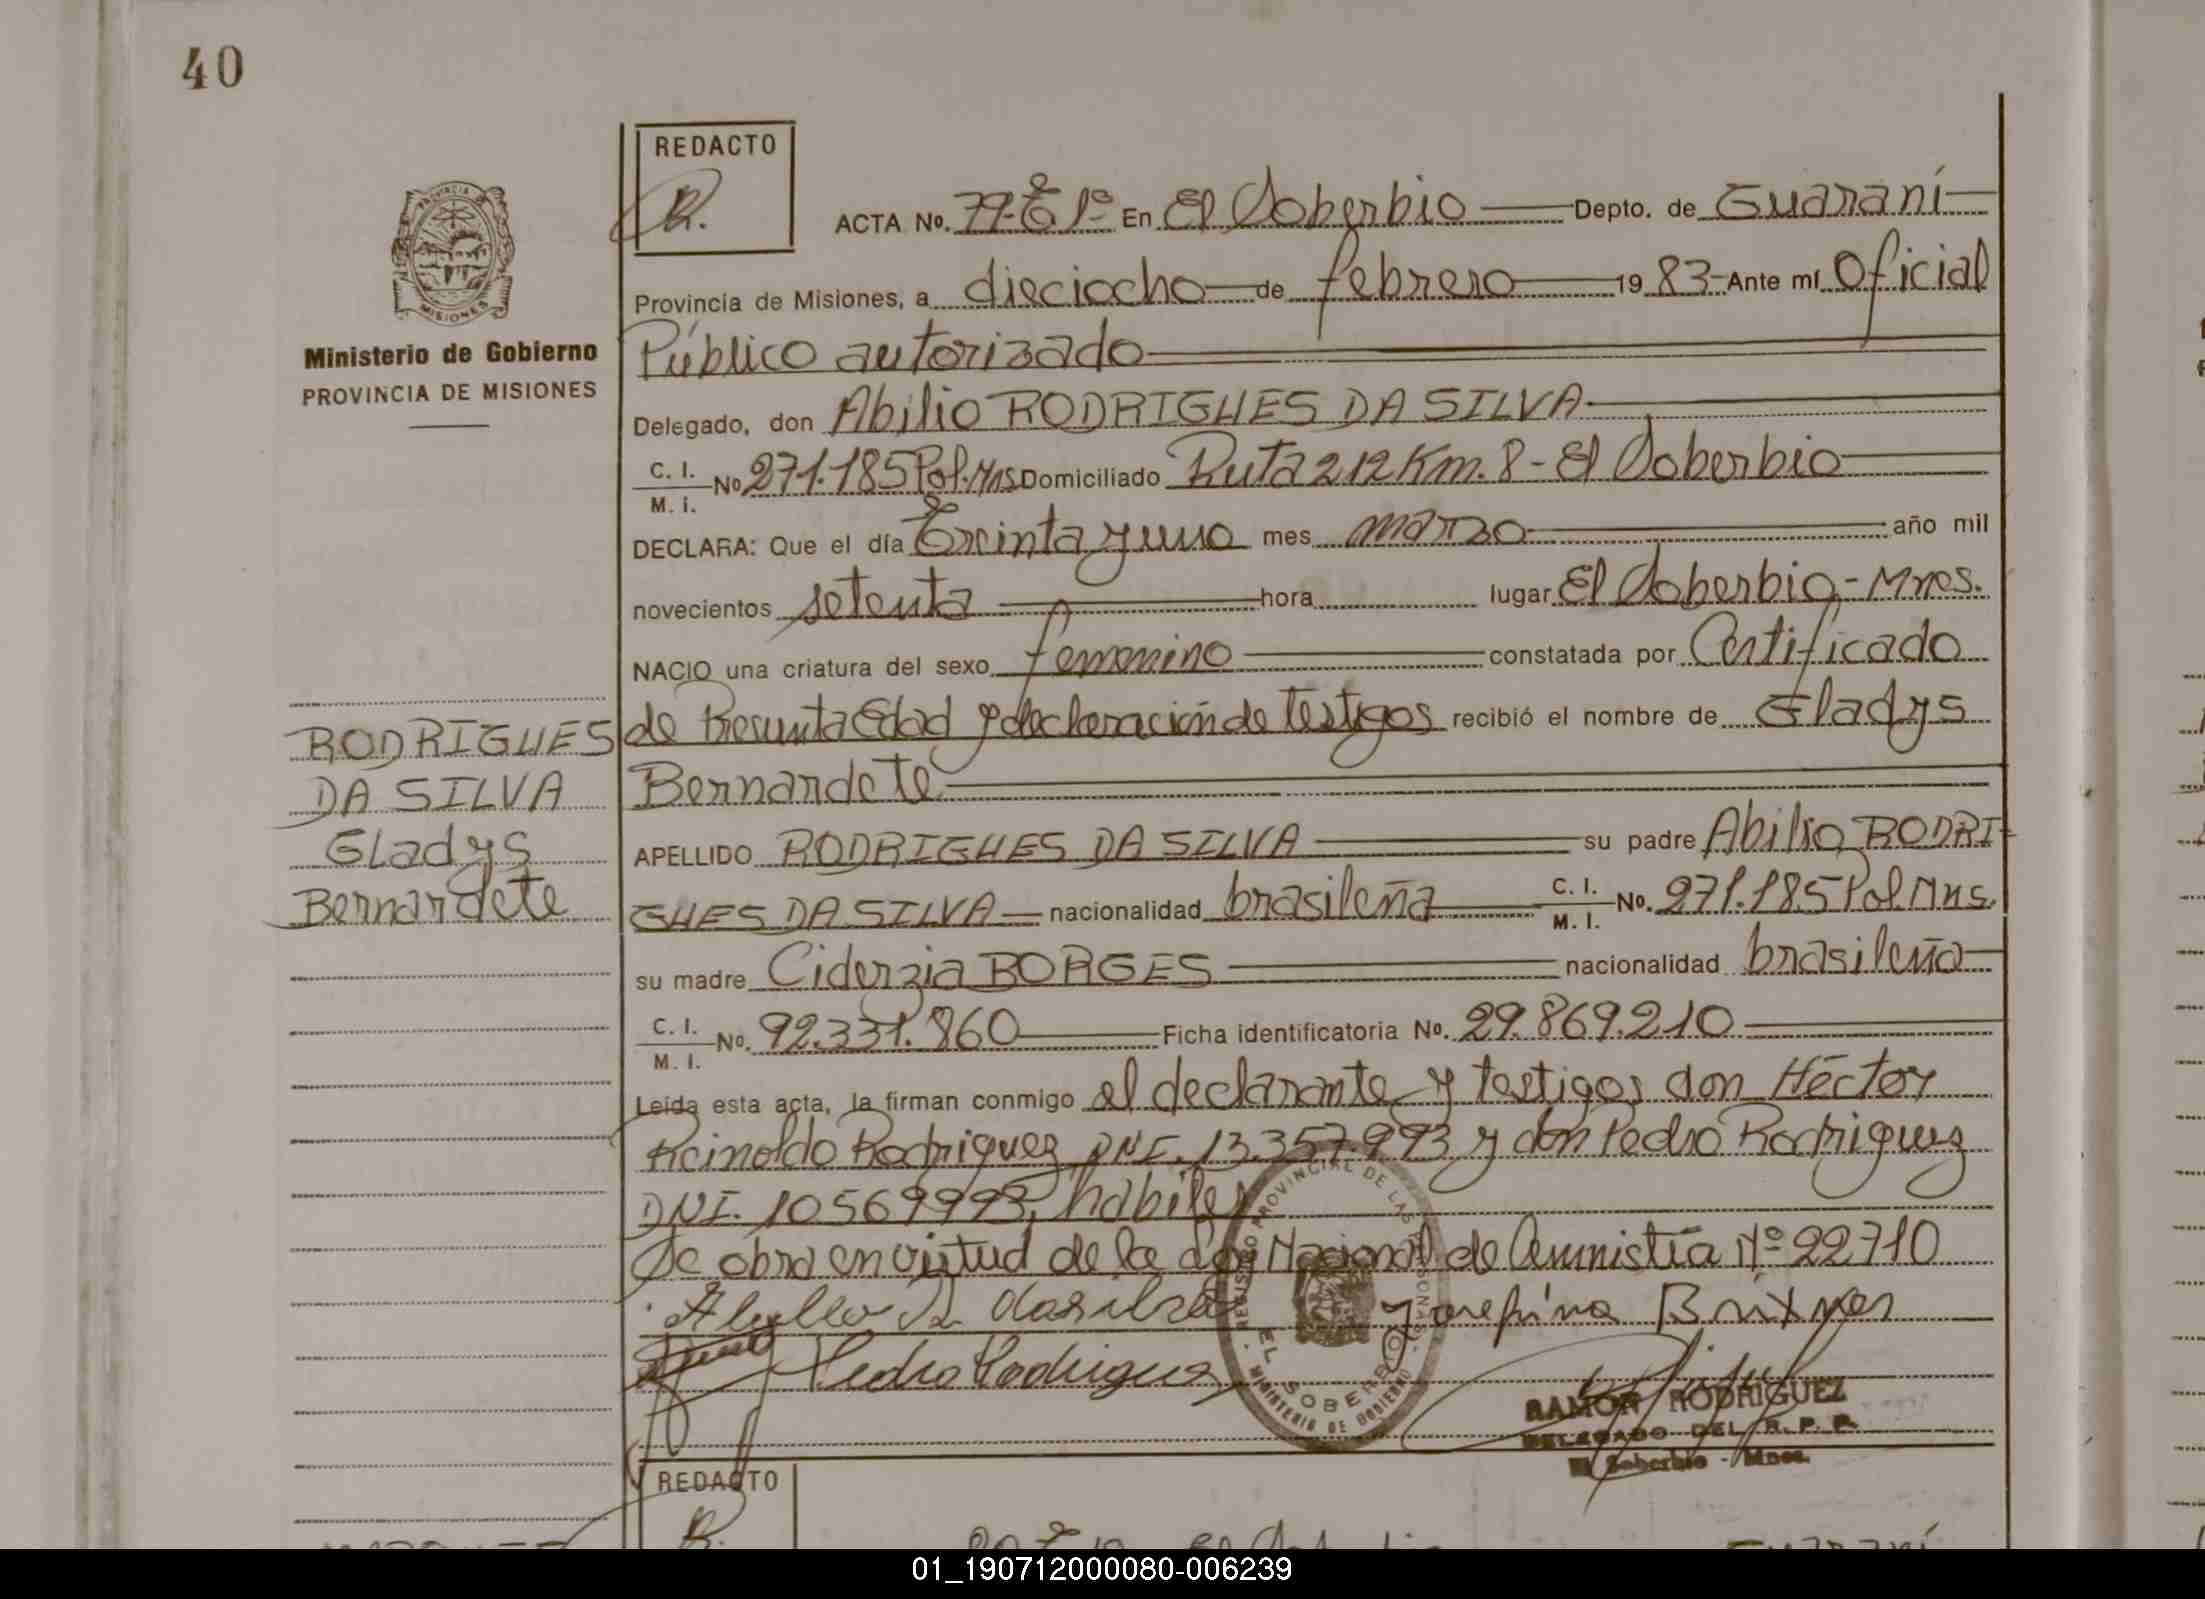 40
REDACTO
R.
ACTA No. 79-Tº 1º En El Soberbio Depto. de Guaraní
Provincia de Misiones, a dieciocho de febrero 19 83- Ante mí Oficial
Público autorizado
Delegado, don Abilio RODRIGUES DA SILVA
C. I. M. I. No 271.185 Pol. Mns. Domiciliado Ruta 212 Km. 8 - El Soberbio
DECLARA: Que el día Treinta y uno mes marzo año mil
novecientos setenta hora lugar El Soberbio - Mnes.
NACIO una criatura del sexo femenino constatada por Certificado
de Presunta Edad y declaración de testigos recibió el nombre de Gladys
Bernardete
APELLIDO RODRIGUES DA SILVA su padre Abilio RODRI-
GUES DA SILVA nacionalidad brasileña C. I. M. I. No. 271.185 Pol. Mns.
su madre Ciderzia BORGES nacionalidad brasileña
C. I. M. I. No. 92.331.860 Ficha identificatoria No. 29.869.210
Leída esta acta, la firman conmigo el declarante y testigos don Héctor
Reinoldo Rodriguez DNI. 13.357.993 y don Pedro Rodriguez
DNI. 10569993, hábiles
Se obra en virtud de la Ley Nacional de Amnistía Nº 22710
Abilio R dasilva Josefina Brixner
Pedro Rodriguez
RAMON RODRIGUEZ
DELEGADO DEL R. P. P.
El Soberbio - Mnes.
REGISTRO PROVINCIAL DE LAS PERSONAS
EL SOBERBIO
MINISTERIO DE GOBIERNO
PROVINCIA
MISIONES
Ministerio de Gobierno
PROVINCIA DE MISIONES
RODRIGUES
DA SILVA
Gladys
Bernardete
REDACTO
R.
01_190712000080-006239